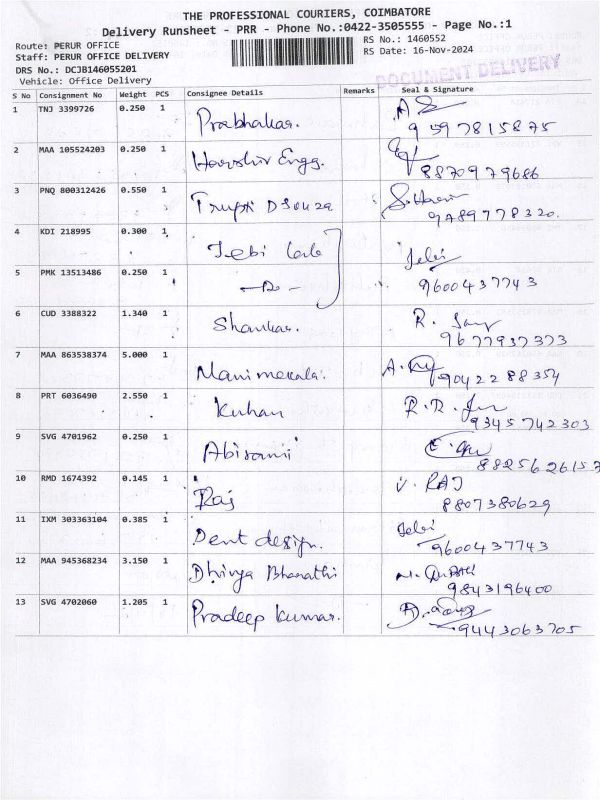 THE PROFESSIONAL COURIERS, COIMBATORE
Delivery Runsheet - PRR - Phone No.:0422-3505555 - Page No.:1
Route: PERUR OFFICE RS No.: 1460552
Staff: PERUR OFFICE DELIVERY RS Date: 16-Nov-2024
DRS No.: DCJB146055201
Vehicle: Office Delivery
DOCUMENT DELIVERY
S No Consignment No Weight PCS Consignee Details Remarks Seal & Signature
1 TNJ 3399726 0.250 1 Prabhakar.
9597815875
2 MAA 105524203 0.250 1 Engg.
8870979686
3 PNQ 800312426 0.550 1 Trupti D Souza
9789778320.
4 KDI 218995 0.300 1 Jebi
Jebi
5 PMK 13513486 0.250 1 -Do-
9600437743
6 CUD 3388322 1.340 1 Shankar. R.
9677937373
7 MAA 863538374 5.000 1 Manimekalai. A.
9042288354
8 PRT 6036490 2.550 1 Kuhan R.R.
9345742303
9 SVG 4701962 0.250 1 Abirami
8825626157
10 RMD 1674392 0.145 1 Raj V. RAJ
8807380629
11 IXM 303363104 0.385 1 Dent design. Jebi
9600437743
12 MAA 945368234 3.150 1 Dhivya Bharathi
9843196400
13 SVG 4702060 1.205 1 Pradeep Kumar.
9443063705